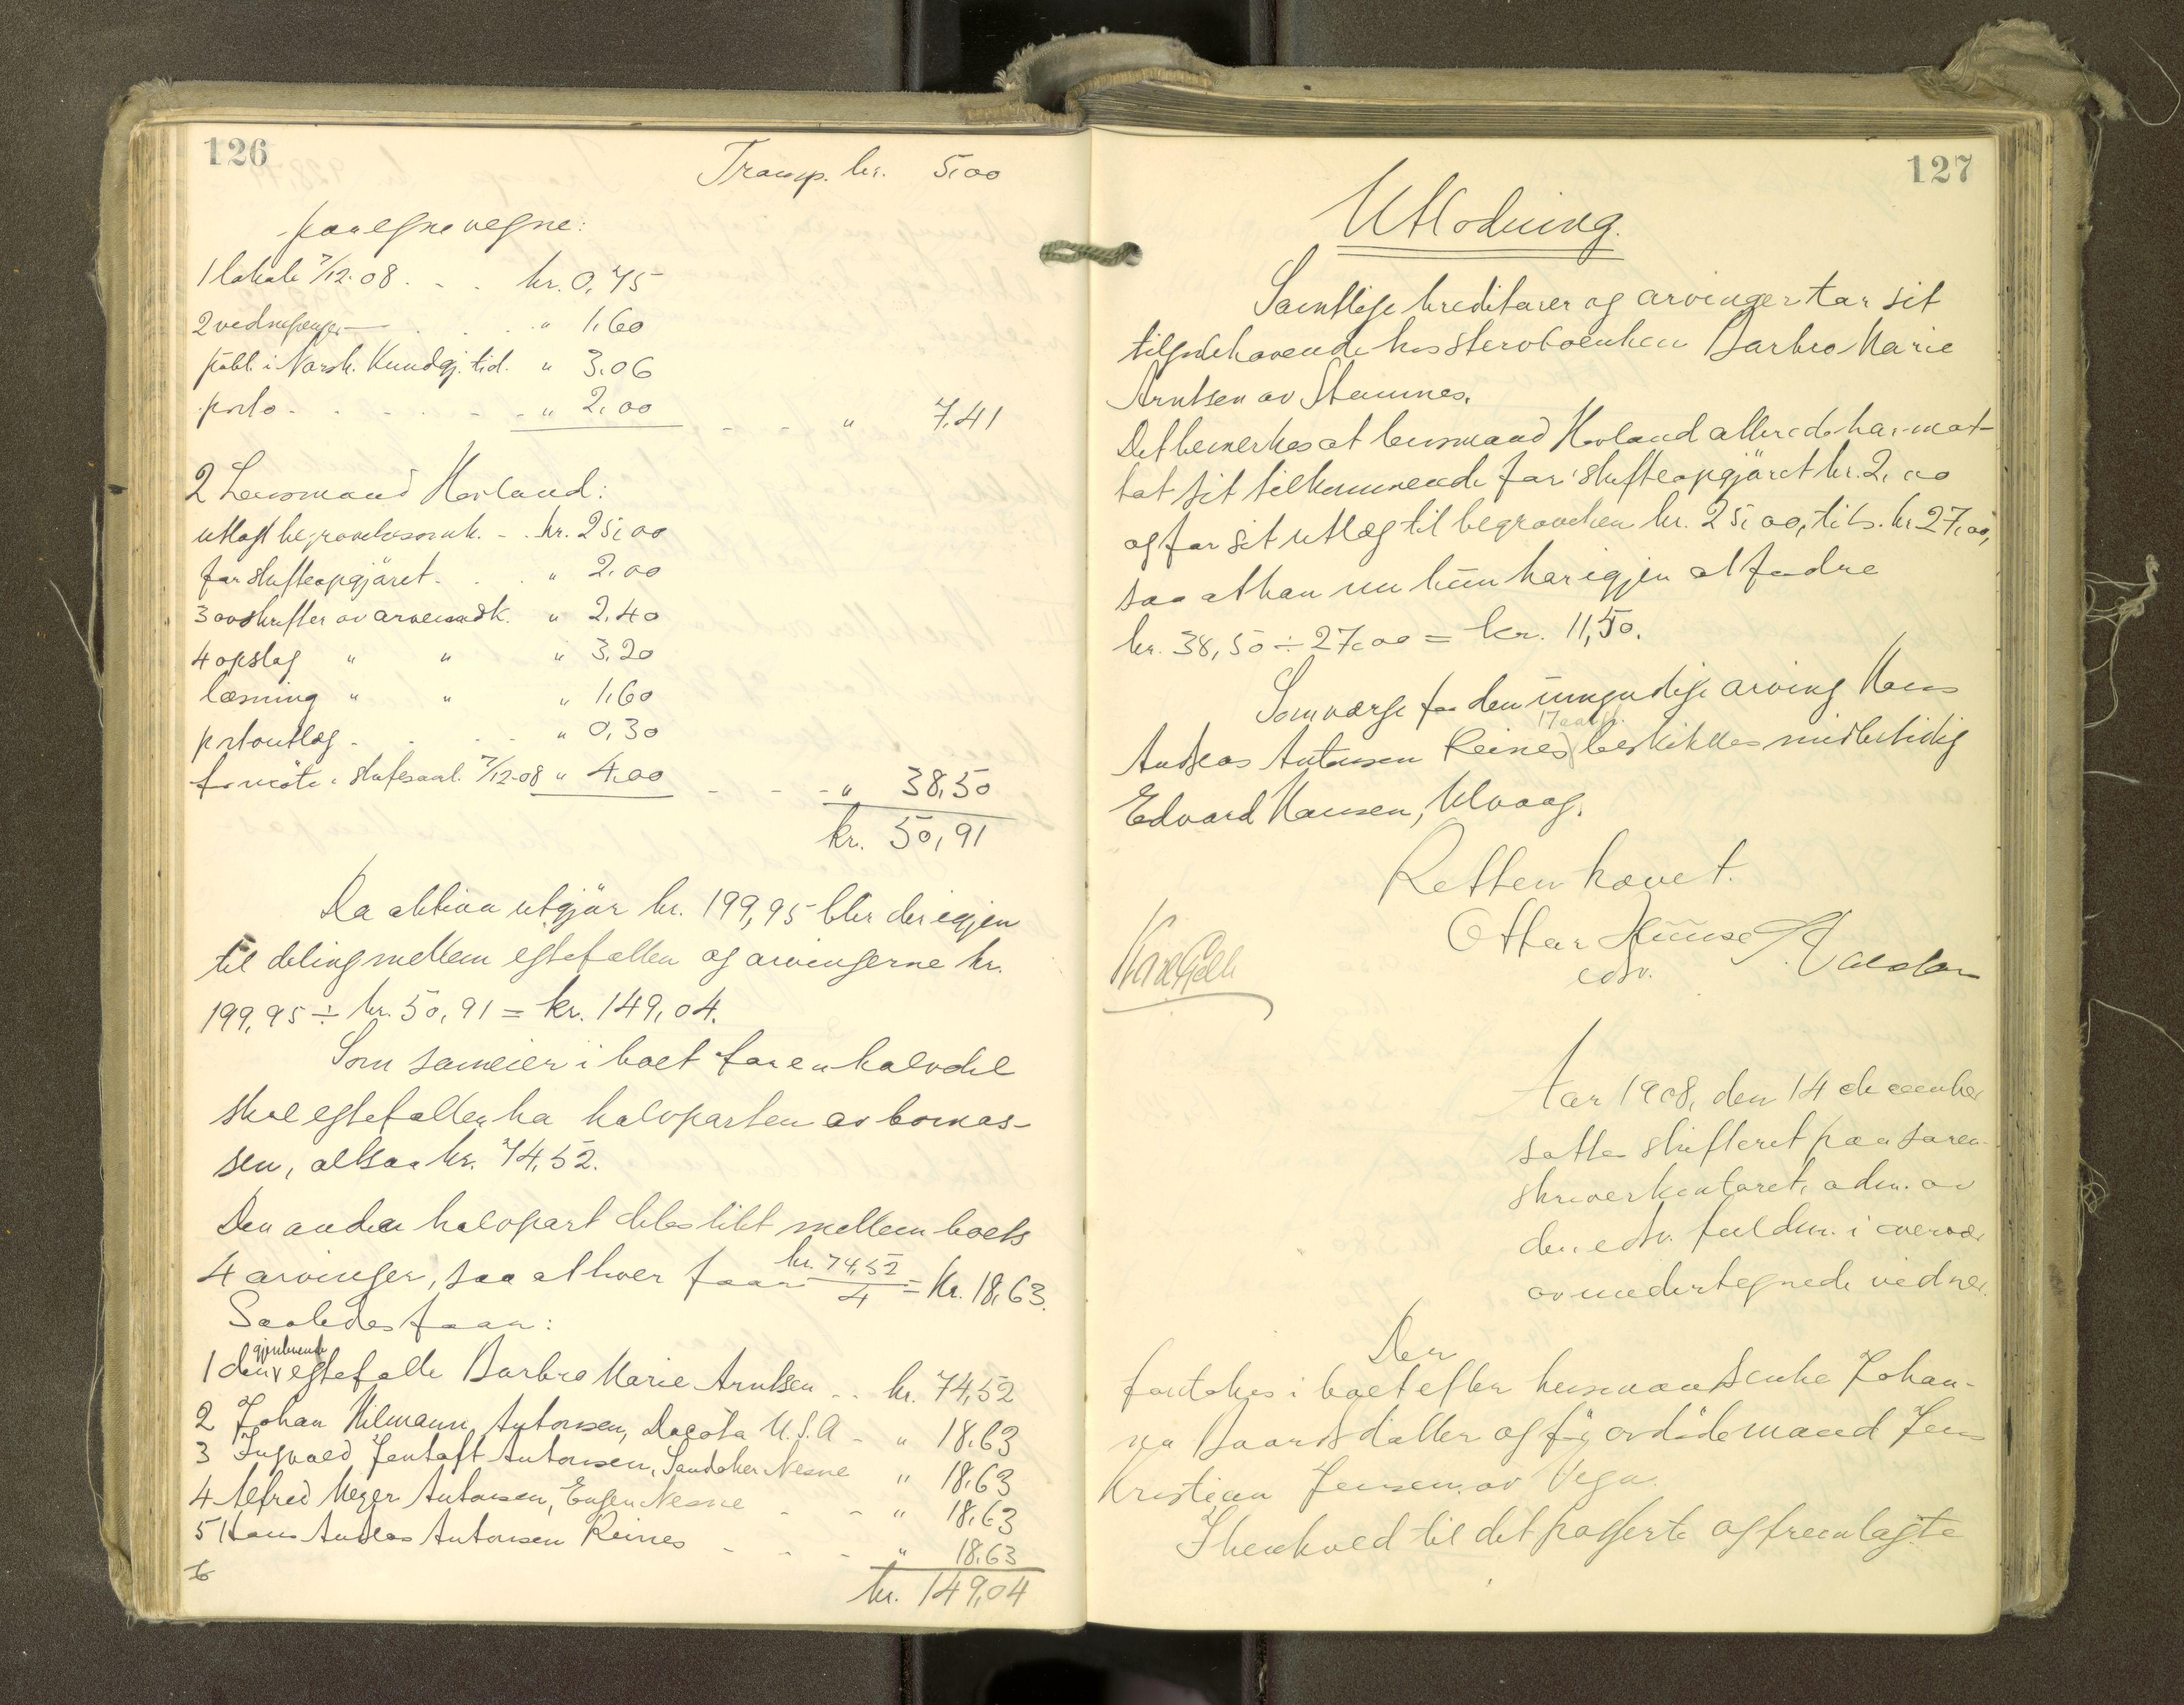 126
Transp. kr. 5,00
paa egne vegne:
1 lokale 7/12-08 . . . kr. 0,75
2 vidnepenger — . . . " 1,60
publ. i Norsk. Kundgj. tid. " 3.06
porto - . . . - - " 2,00 - - - " 7,41
2 Lensmand Hovland:
utlagt begravelsesomk. - . kr. 25,00
for skifteopgjöret . . . " 2,00
3 avskrifter av arveandk. " 2,40
4 opslag " " " 3,20
læsning " " " 1,60
portoutlæg - . . . " 0,30
for möte i skiftesaml. 7/12-08 " 4,00 - - - " 38,50
kr. 50,91
Da aktiva utgjör kr. 199,95 blir der igjen
til deling mellem egtefællen og arvingerne kr.
199,95 ÷ kr. 50,91 = kr. 149,04.
Som sameier i boet for en halvdel
skal egtefællen ha halvparten av bomas-
sen, altsaa kr. 74,52.
Den anden halvpart deles likt mellem boets
4 arvinger, saa at hver faar kr. 74,52/4 = kr. 18,63.
Saaledes faar:
1 den gjenlevende egtefælle Barbro Marie Arntsen . . kr. 74,52
2 Johan Hilmann Antonsen, Dacota U.S.A - " 18,63
3 Ingvald Jentoft Antonsen, Sandaker Nesne " 18,63
4 Alfred Meyer Antonsen, Engen Nesne - - " 18,63
5 Hans Andreas Antonsen Reines - - - " 18,63
kr. 149,04
127
Utlodning.
Samtlige kreditorer og arvinger tar sit
tilgodehavende hos stervboenken Barbro Marie
Arntsen av Stamnes.
Det bemerkes at lensmand Hovland allerede har mot-
tat sit tilkommende for skifteopgjöret kr. 2,00
og for sit utlæg til begravelsen kr. 25,00, tils. kr 27,00,
saa at han nu kun har igjen at fordre
kr. 38,50 ÷ 27,00 = kr. 11,50.
Som værge for den umyndige arving Hans
Andreas Antonsen Reines 17 aar gl. beskikkes midlertidig
Edvard Hansen, Ulvaag.
Retten hævet.
Ottar Huuse
edsv.
Aar 1908, den 14 december
sattes skifteret paa soren-
skriverkontoret, adm. av
den edsv. fuldm. i overvær
av undertegnede vidner.
Der
foretokes i boet efter husmandsenke Johan-
na Baardsdatter og för avdöde mand Jens
Kristian Jensen, av Vega.
I henhold til det passerte og fremlagte